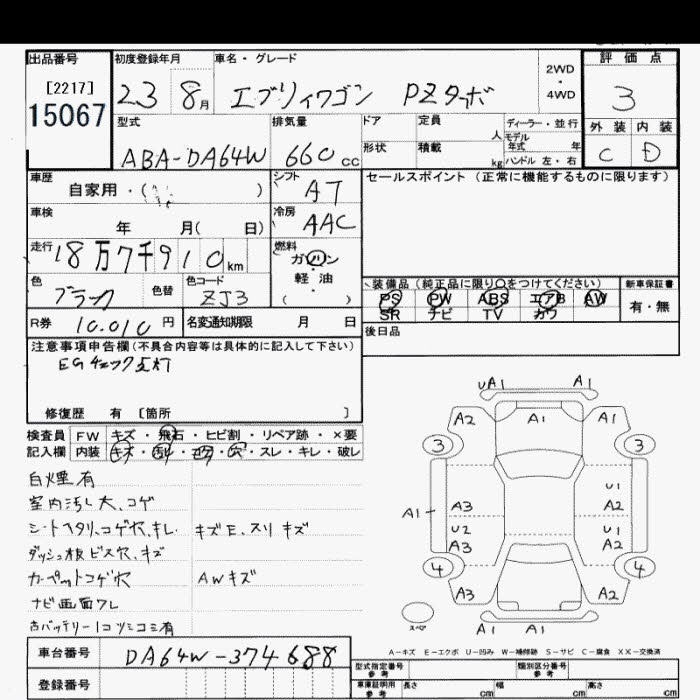 出品番号 初度登録年月 車名・グレード 評価点
[2217] 15067 23 8月 エブリイワゴン PZターボ 2WD・4WD 3
型式 排気量 ドア 定員 人 ディーラー・並行 外装 内装
モデル年式 年
ABA-DA64W 660cc 形状 積載 kg ハンドル 左・右 C D
車歴 自家用・( ) シフト AT セールスポイント (正常に機能するものに限ります)
車検 年 月( 日) 冷房 AAC
走行 18万7千910km 燃料 ガソリン・軽油・( )
色 ブラック 色替 色コード ZJ3
装備品(純正品に限り○をつけてください) 新車保証書
PS PW ABS エアB AW 有・無
SR ナビ TV カワ
R券 10.010円 名変通知期限 月 日 後日品
注意事項申告欄(不具合内容等は具体的に記入して下さい)
EGチェック点灯
修復歴 有 [箇所 ]
検査員記入欄 FW キズ・飛石・ヒビ割・リペア跡・×要
内装 スレ・キレ・破レ
白煙有
室内汚レ大、コゲ
シートヘタリ、コゲ穴、キレ キズE、スリキズ
ダッシュ板ビス穴、キズ
カーペットコゲ穴 AWキズ
ナビ画面ワレ
UA1 A1
A2 A1 A1
3 3
U1
A1 A3 A2
U2 U1
A3 A2
4 4
A3 A2
スペア A1 A1
A-キズ E-エクボ U-凹み W-補修跡 S-サビ C-腐食 XX-交換済
車台番号 DA64W-374688
登録番号
型式指定番号 参考 類別区分番号 参考
車庫証明用 参考 長さ cm 幅 cm 高さ cm